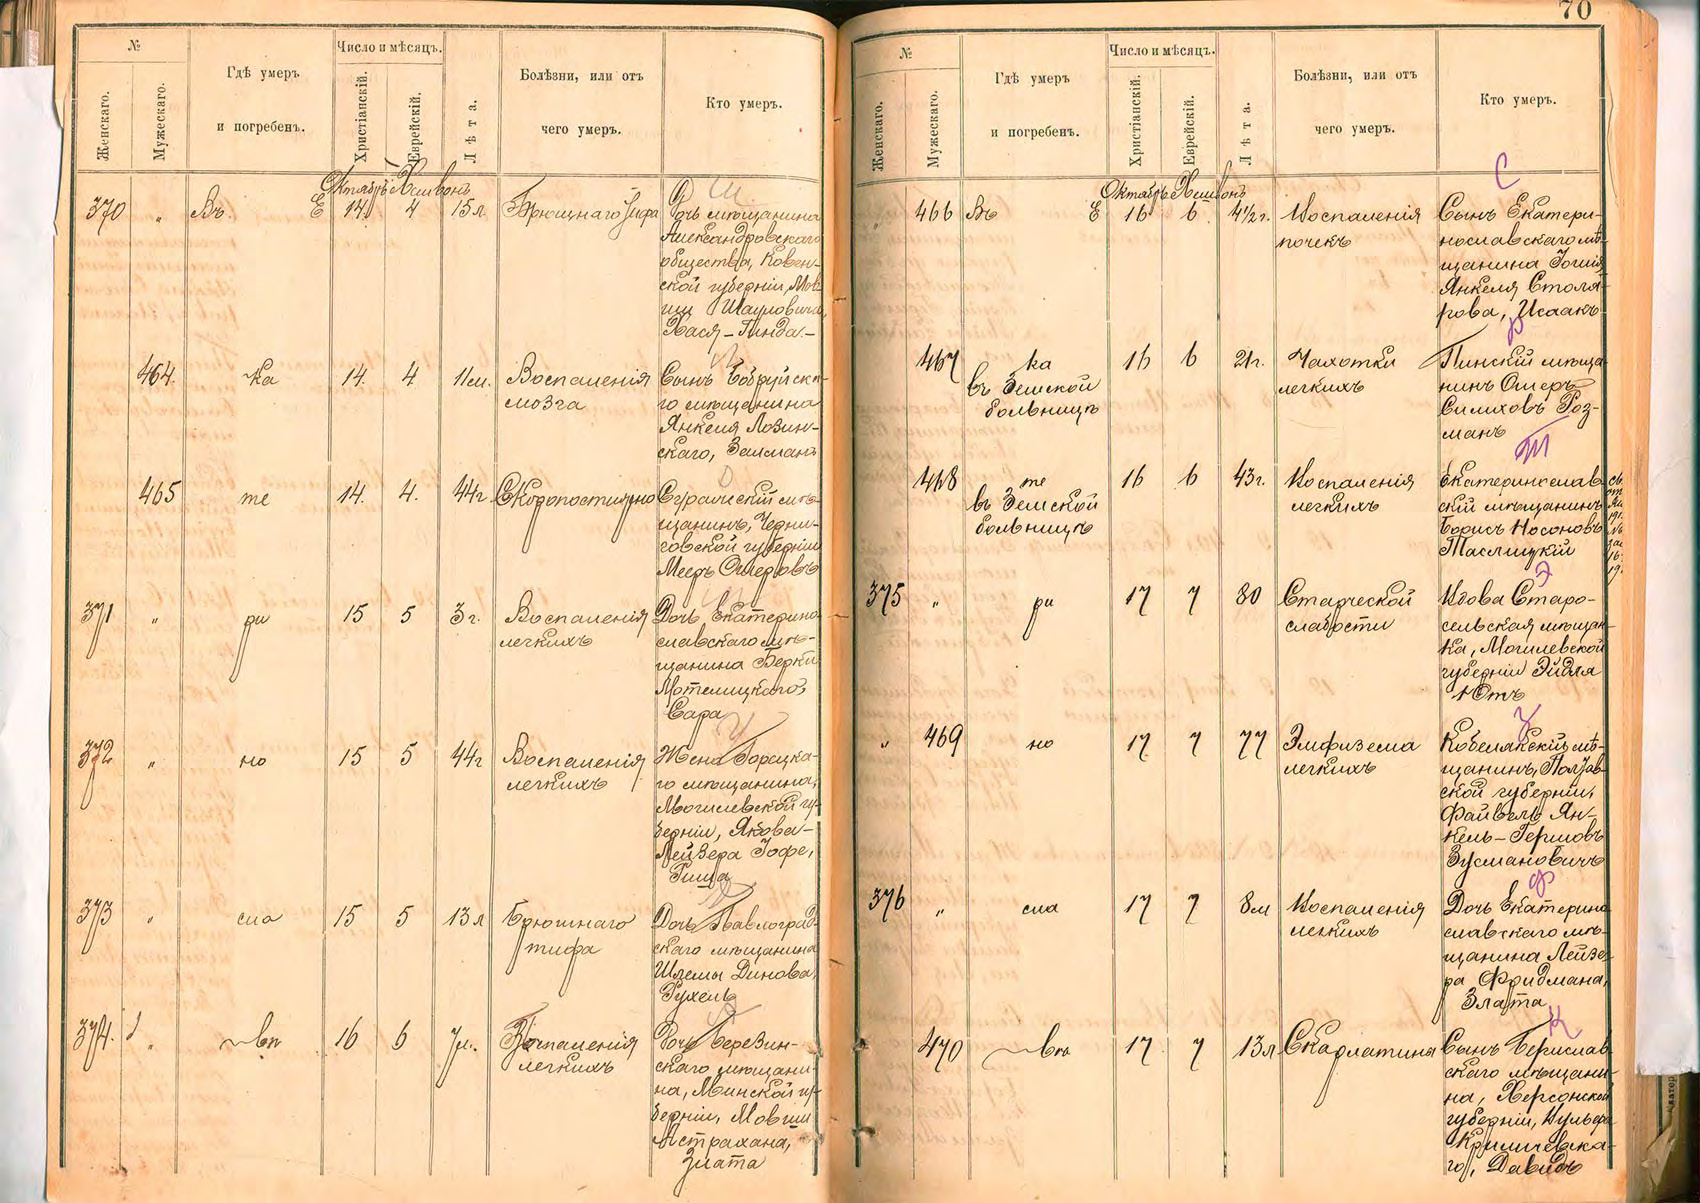 №
Женскаго.
Мужескаго.
Гдѣ умеръ
и погребенъ.
Число и мѣсяцъ.
Христіанскій.
Еврейскій.
Лѣта.
Болѣзни, или отъ
чего умеръ.
Кто умеръ.
Октябрь Хешвонъ
370 " Въ Е 14 4 15 л. Брюшнаго тифа
Дочь мѣщанина
Александровскаго
общества, Ковен-
ской губерніи, Мов-
ши Шаулович
Хася-Гинда-
464. ка 14. 4 11 м. Воспаленія
мозга
Сынъ Бобруйска-
го мѣщанина
Янкеля Лозин-
скаго, Залманъ
465 те 14. 4. 44 г. Скоропостижно
мѣ-
щанинъ, Черни-
говской губерніи
Мееръ
371 " ри 15 5 3 г. Воспаленія
легкихъ
Дочь Екатерино-
славскаго мѣ-
щанина Берки
Мотелицкаго,
Сара
372 " но 15 5 44 г Воспаленія
легкихъ
Жена Горецка-
го мѣщанина,
Могилевской гу-
берніи, Якова-
Лейзера Іофе,
Гиша
373 " сла 15 5 13 л Брюшнаго
тифа
Дочь Павлоград-
скаго мѣщанина
Шлемы Динова,
Рухель
374. " вѣ 16 6 7 м. Воспаленія
легкихъ
Дочь Березин-
скаго мѣщани-
на, Минской гу-
берніи, Мовши
Астрахана,
Злата
70
№
Женскаго.
Мужескаго.
Гдѣ умеръ
и погребенъ.
Число и мѣсяцъ.
Христіанскій.
Еврейскій.
Лѣта.
Болѣзни, или отъ
чего умеръ.
Кто умеръ.
С
Октябрь Хешвонъ
" 466 Въ Е 16 6 4½ г. Воспаленія
почекъ
Сынъ Екатери-
нославскаго мѣ-
щанина
Янкеля Столя-
рова, Исаакъ
Р
467 ка 16 6 21 г. Чахотки
въ Земской
больницѣ
легкихъ
Пинскій мѣща-
нинъ Ошеръ
Роз-
манъ
Т
468 те 16 6 43 г. Воспаленія
въ Земской
больницѣ
легкихъ
Екатеринослав-
скій мѣщанинъ
Борисъ Носоновъ
Таслицкій
Э
375 " ри 17 7 80 Старческой
слабости
Вдова Старо-
сельская мѣщан-
ка, Могилевской
губерніи Эйдля
Этъ
З
" 469 но 17 7 77 Эмфизема
легкихъ
Кобелякскій мѣ-
щанинъ, Полтав-
ской губерніи,
Файвель Ян-
кель-Гершовъ
Зусмановичъ
Ф
376 " сла 17 7 8 м Воспаленія
легкихъ
Дочь Екатерино-
славскаго мѣ-
щанина Лейзе-
ра Фридмана,
Злата
К
470 вѣ 17 7 13 л Скарлатины
Сынъ Берислав-
скаго мѣщани-
на, Херсонской
губерніи, Вульфа
Криличевска-
го, Давидъ